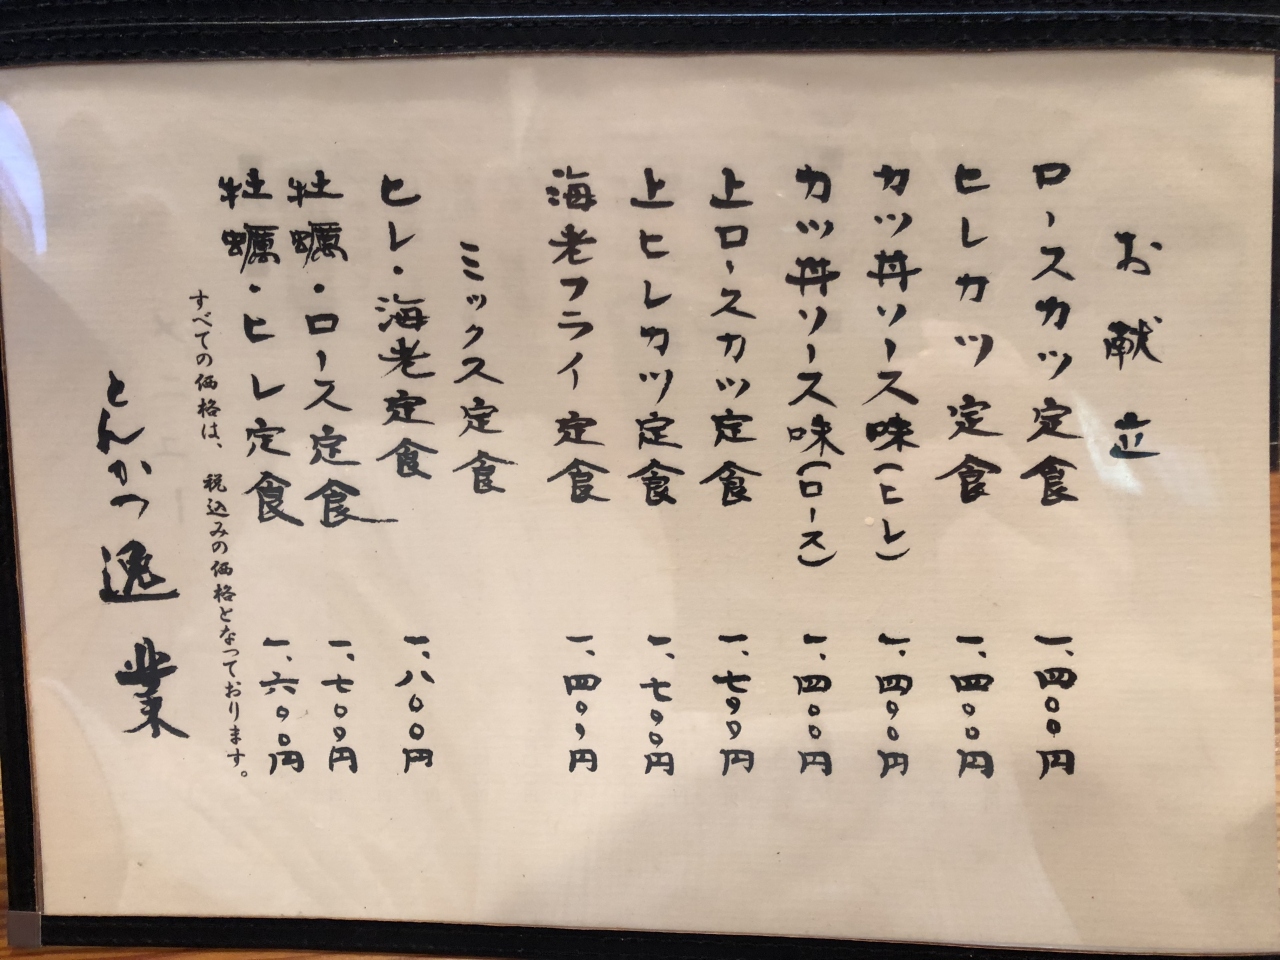 お献立
ロースカツ定食 一、四〇〇円
ヒレカツ定食 一、四〇〇円
カツ丼ソース味(ヒレ) 一、四〇〇円
カツ丼ソース味(ロース) 一、四〇〇円
上ロースカツ定食 一、七〇〇円
上ヒレカツ定食 一、七〇〇円
海老フライ定食 一、四〇〇円
ミックス定食
ヒレ・海老定食 一、八〇〇円
牡蠣・ロース定食 一、七〇〇円
牡蠣・ヒレ定食 一、六〇〇円
すべての価格は、税込みの価格となっております。
とんかつ逸業